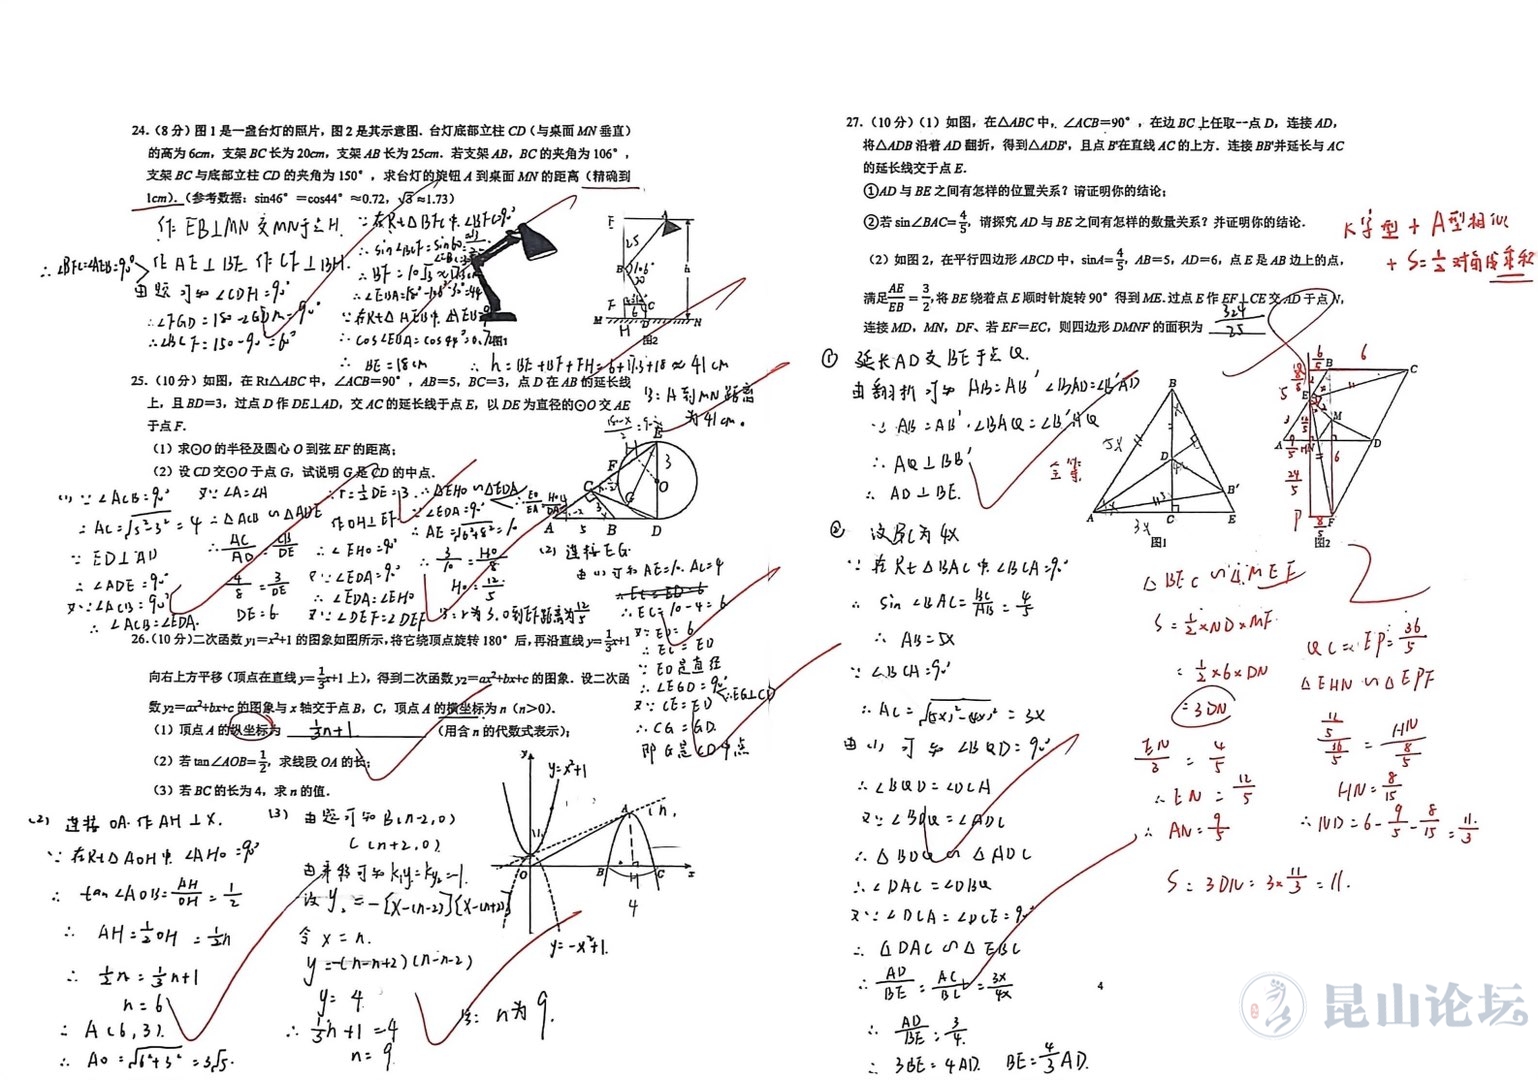 24.(8分)图1是一盏台灯的照片,图2是其示意图.台灯底部立柱CD(与桌面MN垂直)
的高为6cm,支架BC长为20cm,支架AB长为25cm.若支架AB,BC的夹角为106°,
支架BC与底部立柱CD的夹角为150°,求台灯的旋钮A到桌面MN的距离(精确到
1cm).(参考数据:sin46°=cos44°≈0.72,√3≈1.73)
作EB⊥MN交MN于点H.
作AE⊥BE 作CF⊥BH.
由题可知∠CDH=90°
∴BE=18cm
∴h=BE+BF+FH=6+17.3+18≈41cm
答:A到MN距离
为41cm.
图1
图2
25.(10分)如图,在Rt△ABC中,∠ACB=90°,AB=5,BC=3,点D在AB的延长线
上,且BD=3,过点D作DE⊥AD,交AC的延长线于点E,以DE为直径的⊙O交AE
于点F.
(1)求⊙O的半径及圆心O到弦EF的距离;
(2)设CD交⊙O于点G,试说明G是CD的中点.
(1)∵∠ACB=90°
∴AC=√5²-3²=4
∵ED⊥AD
∴∠ADE=90°
又∵∠ACB=90°
∴∠ACB=∠EDA.
又∵∠A=∠A
∴△ACB∽△ADE
∴AC/AD=CB/DE
4/8=3/DE
DE=6
∴r=1/2DE=3
作OH⊥EF
∴∠EHO=90°
又∵∠EDA=90°
∴∠EDA=∠EHO
又∵∠DEF=∠DEF
∴△EHO∽△EDA
∵∠EDA=90°
∴AE=√6²+8²=10
∴3/10=HO/8
HO=12/5
(2)连接EG.
由(1)可知AE=10.AC=4
∴EC=10-4=6
又∵ED=6
∴EC=ED
∵ED是直径
∴∠EGD=90°
∴EG⊥CD
又∵CE=ED
∴CG=GD.
即G是CD中点
26.(10分)二次函数y₁=x²+1的图象如图所示,将它绕顶点旋转180°后,再沿直线y=1/3x+1
向右上方平移(顶点在直线y=1/3x+1上),得到二次函数y₂=ax²+bx+c的图象.设二次函
数y₂=ax²+bx+c的图象与x轴交于点B,C,顶点A的横坐标为n(n>0).
(1)顶点A的纵坐标为 1/3n+1 (用含n的代数式表示);
(2)若tan∠AOB=1/2,求线段OA的长;
(3)若BC的长为4,求n的值.
(2)连接OA.作AH⊥X.
∵在Rt△AOH中.∠AHO=90°
∴tan∠AOB=AH/OH=1/2
∴AH=1/2OH=1/2n
∴1/2n=1/3n+1
n=6
∴A(6,3).
∴AO=√6²+3²=3√5.
(3)由题可知B(n-2,0)
C(n+2,0)
设y₂=-[X-(n-2)][X-(n+2)]
令x=n.
y=-(n-n+2)(n-n-2)
y=4
∴1/3n+1=4
n=9
答:n为9.
y=x²+1
y=-x²+1.
27.(10分)(1)如图,在△ABC中,∠ACB=90°,在边BC上任取一点D,连接AD,
将△ADB沿着AD翻折,得到△ADB',且点B'在直线AC的上方.连接BB'并延长与AC
的延长线交于点E.
①AD与BE之间有怎样的位置关系?请证明你的结论;
②若sin∠BAC=4/5,请探究AD与BE之间有怎样的数量关系?并证明你的结论.
(2)如图2,在平行四边形ABCD中,sinA=4/5,AB=5,AD=6,点E是AB边上的点,
满足AE/EB=3/2,将BE绕着点E顺时针旋转90°得到ME.过点E作EF⊥CE交AD于点N,
连接MD,MN,DF、若EF=EC,则四边形DMNF的面积为 324/25
K字型+A型相似
+S=1/2对角线乘积
① 延长AD交BE于点Q.
由翻折可知AB=AB' ∠BAD=∠B'AD
∵AB=AB'.∠BAQ=∠B'AQ
∴AQ⊥BB'
∴AD⊥BE.
② 设BC为4x
∵在Rt△BAC中.∠BCA=90°
∴sin∠BAC=BC/AB=4/5
∴AB=5X
∵∠BCA=90°
∴AC=√(5x)²-(4x)²=3X
由(1)可知∠BQD=90°
∴∠BQD=∠DCA
又∵∠BDQ=∠ADC
∴△BDQ∽△ADC
∴∠DAC=∠DBQ
又∵∠DCA=∠DCE=90°
∴△DAC∽△EBC
∴AD/BE=AC/BC=3x/4x
∴AD/BE=3/4.
∴3BE=4AD. BE=4/3AD.
图1
图2
△BEC∽△MEF
S=1/2×ND×MF
=1/2×6×DN
=3DN
EN/3=4/5
∴EN=12/5
∴AN=9/5
QC=EP=36/5
△EHN∽△EPF
HN=8/15
∴ND=6-9/5-8/15=11/3
S=3DN=3×11/3=11.
4
昆山论坛